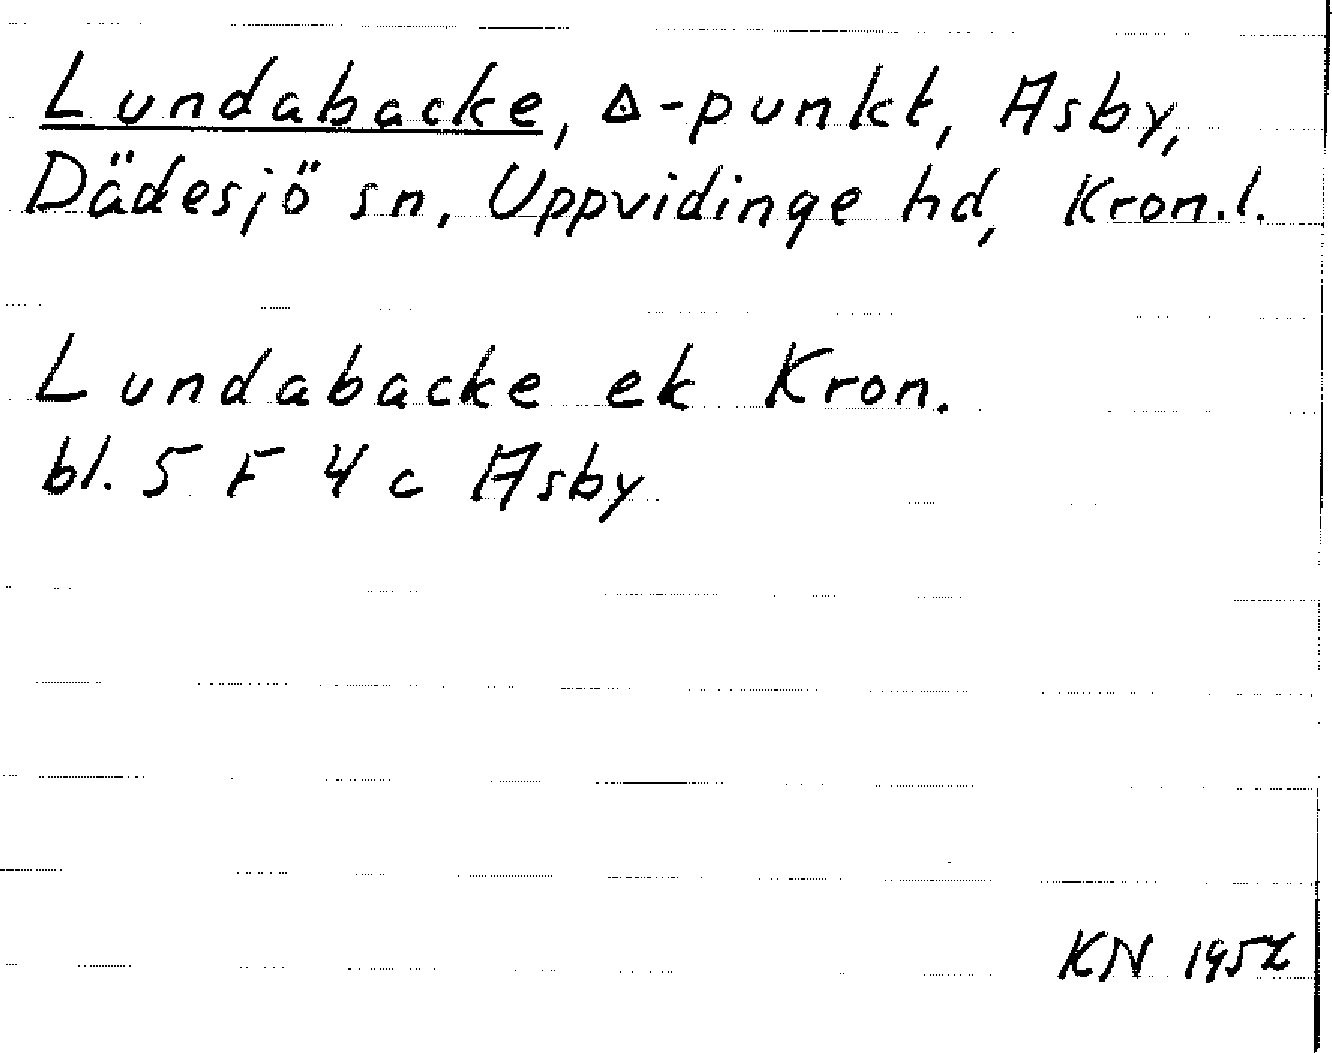 Lundabacke, △-punkt, Asby,
Dädesjö sn, Uppvidinge hd, Kron.l.
Lundabacke ek Kron.
bl. 5 F 4 c Asby
KN 1952